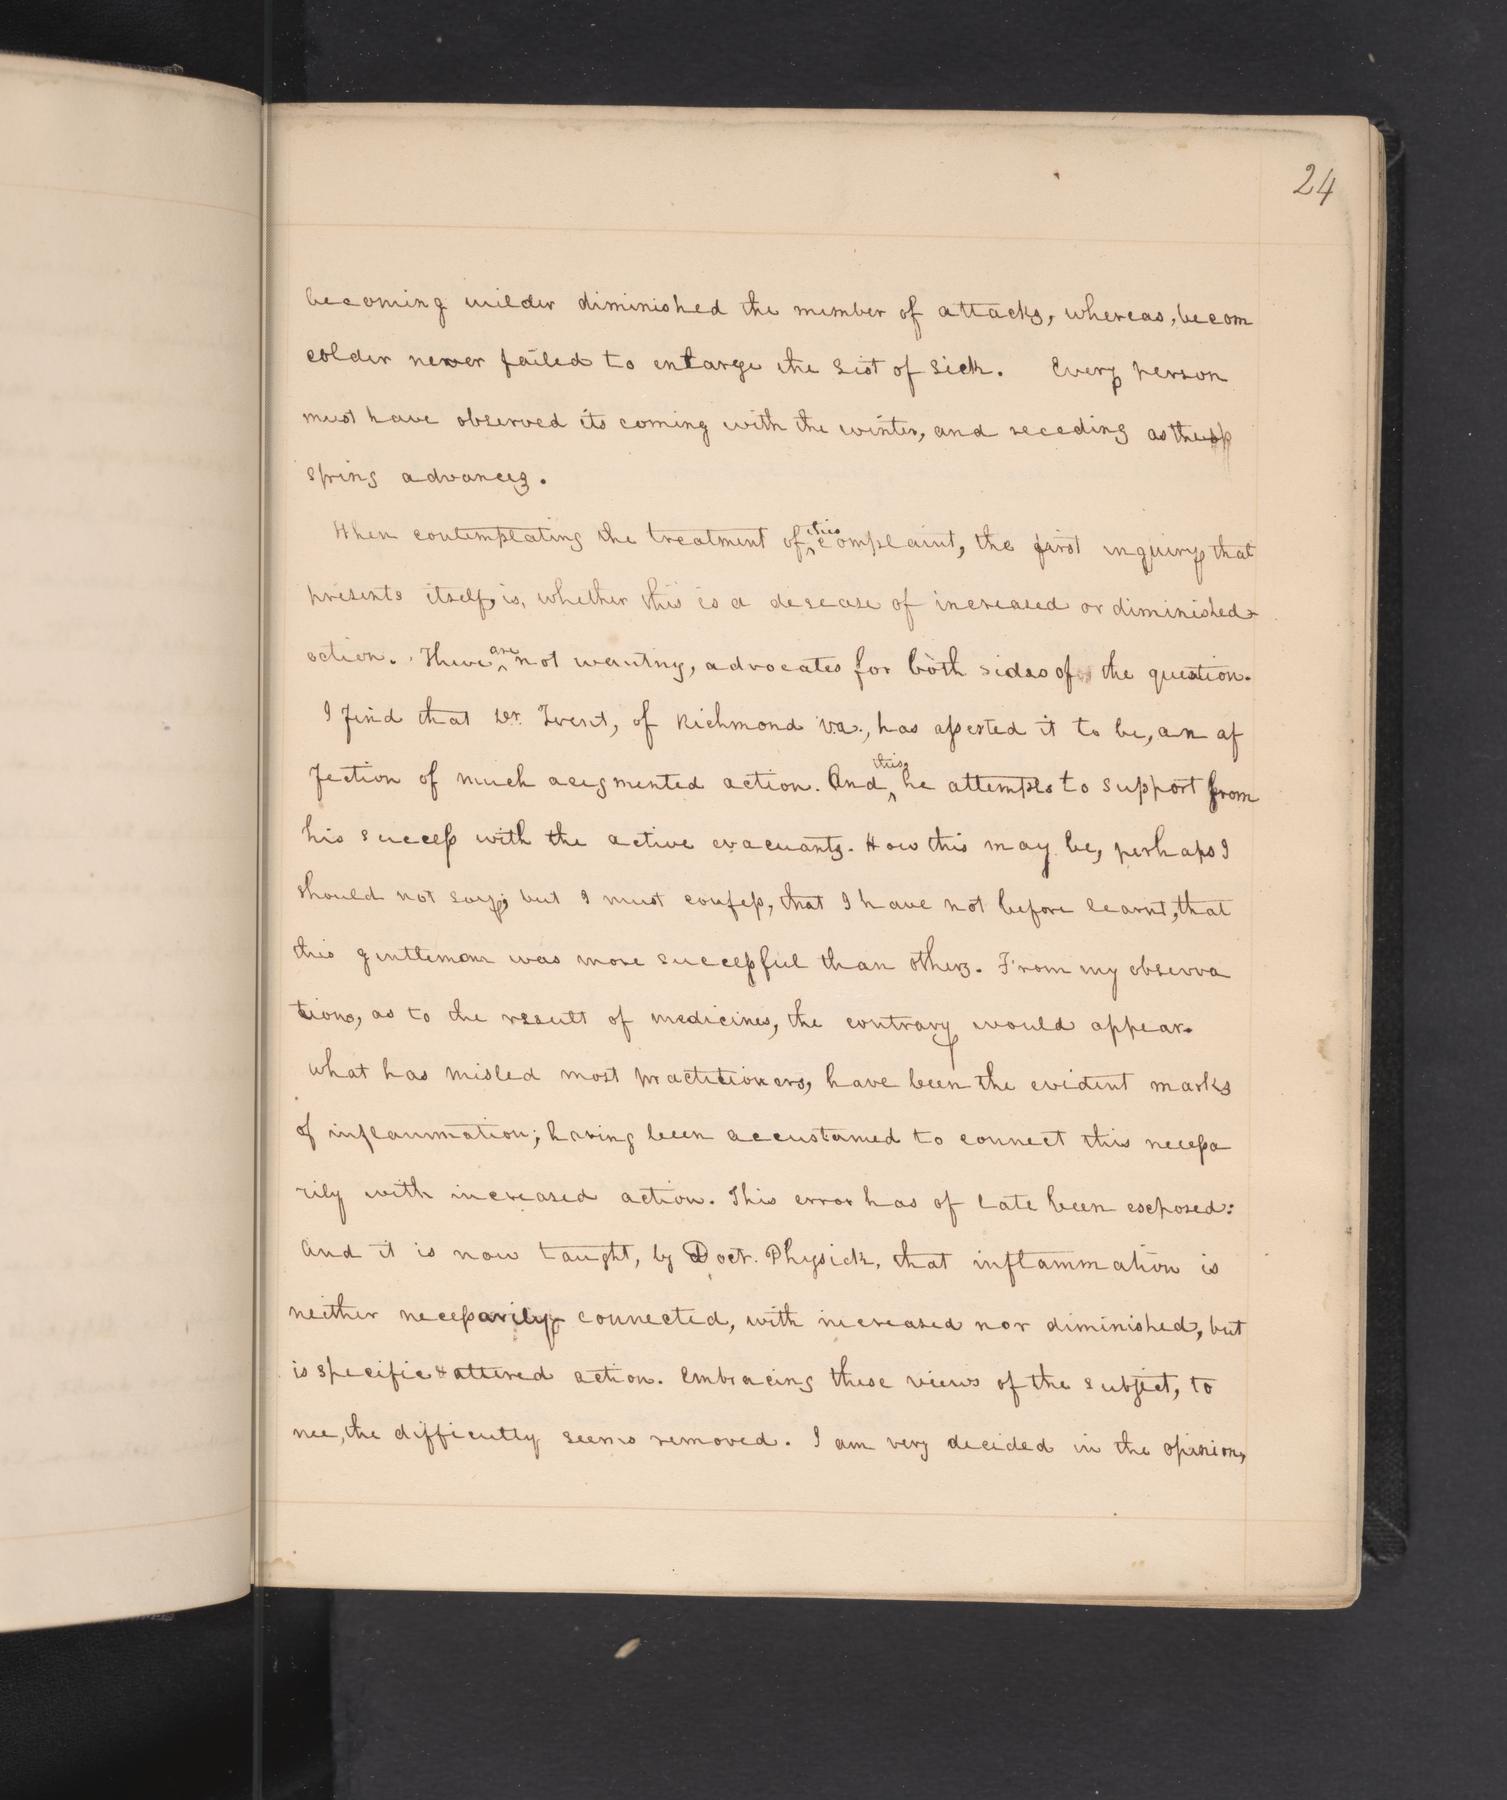 24
becoming milder diminished the number of attacks, whereas, becom
colder never failed to enlarge the list of sick. Every person
must have observed its coming with the winter, and receding as the
spring advances.
When contemplating the treatment of this complaint, the first inquiry that
presents itself, is, whether this is a desease of increased or diminished
action. There are not wanting, advocates for both sides of the question.
I find that Dr. Trent, of Richmond Va., has asserted it to be, an af
fection of much augmented action. And this, he attempts to support from
his success with the active evacuants. How this may be, perhaps I
should not say; but I must confess, that I have not before learnt, that
this gentleman was more successful than others. From my observa
tions, as to the result of medicines, the contrary would appear.
What has misled most practitioners, have been the evident marks
of inflammation; having been accustomed to connect this necessa
rily with increased action. This error has of late been exposed:
And it is now taught, by Doct. Physick, that inflammation is
neither necessarily connected, with increased nor diminished, but
is specific & altered action. Embracing these views of the subject, to
me, the difficulty seems removed. I am very decided in the opinion,